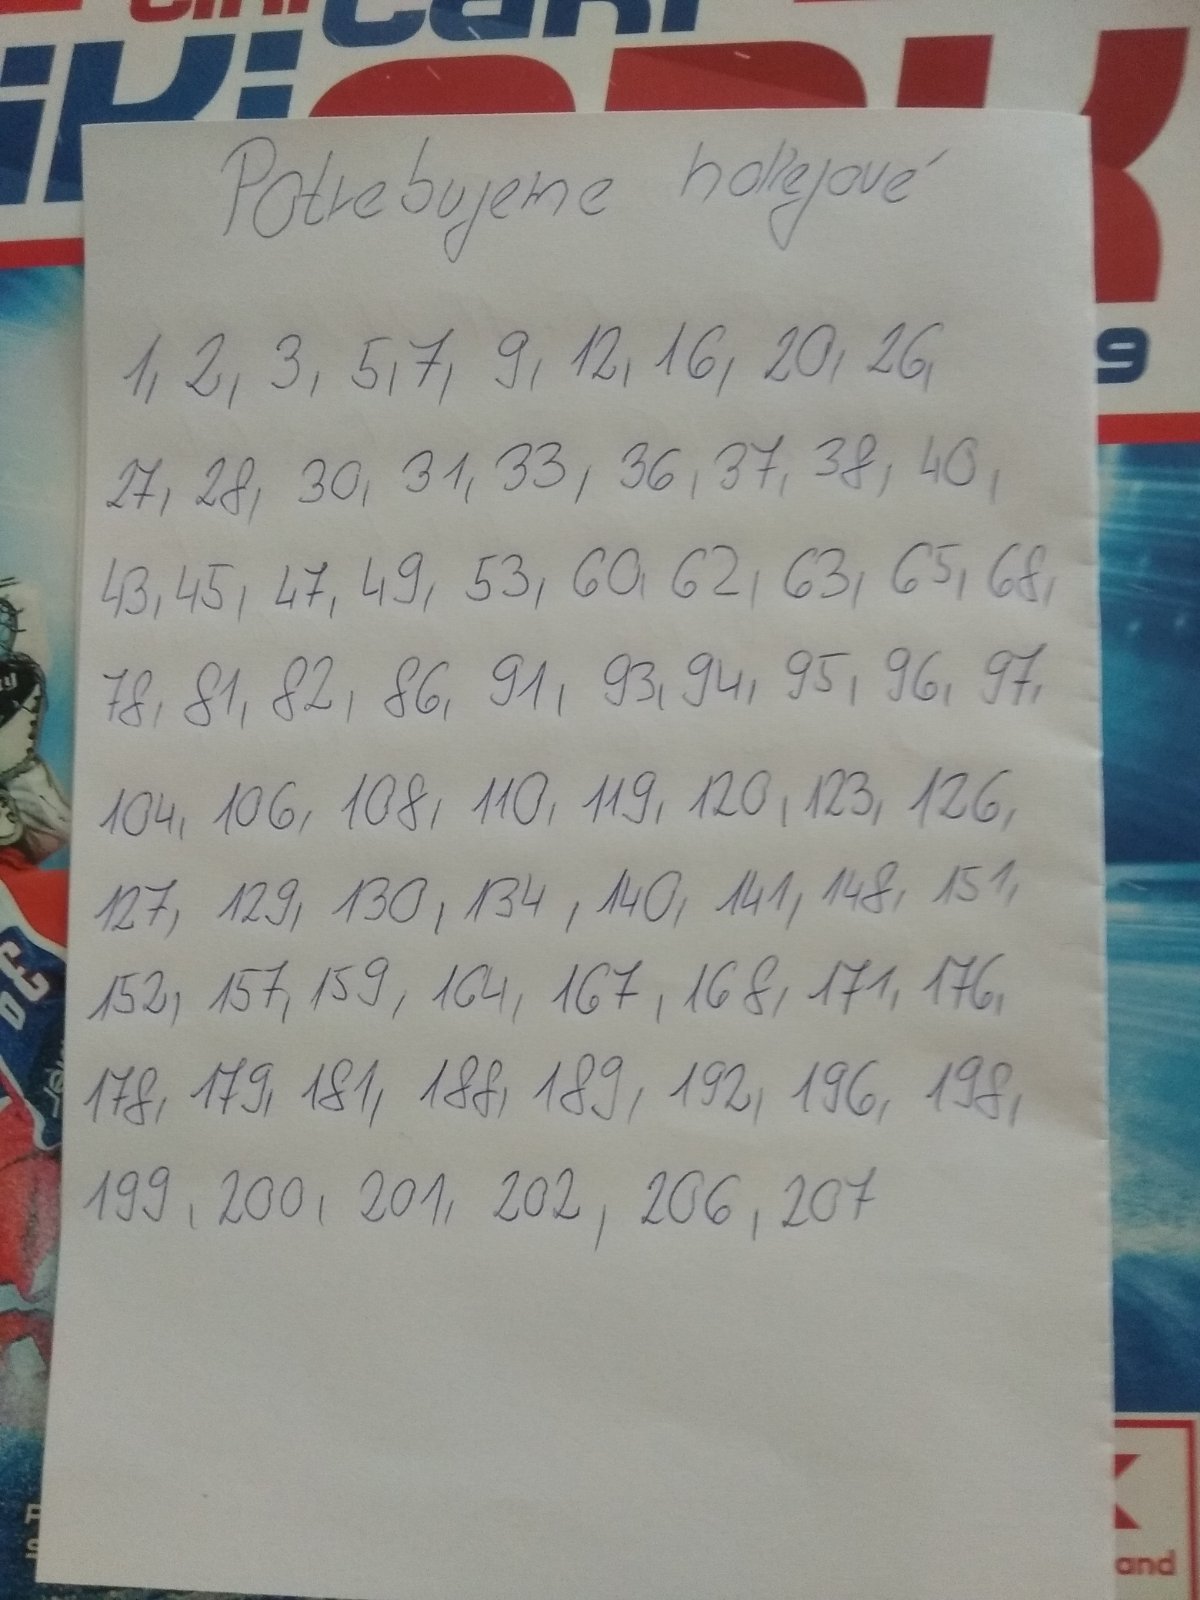 Potrebujeme hokejové
1, 2, 3, 5, 7, 9, 12, 16, 20, 26,
27, 28, 30, 31, 33, 36, 37, 38, 40,
43, 45, 47, 49, 53, 60, 62, 63, 65, 68,
78, 81, 82, 86, 91, 93, 94, 95, 96, 97,
104, 106, 108, 110, 119, 120, 123, 126,
127, 129, 130, 134, 140, 141, 148, 151,
152, 157, 159, 164, 167, 168, 171, 176,
178, 179, 181, 188, 189, 192, 196, 198,
199, 200, 201, 202, 206, 207
9
and